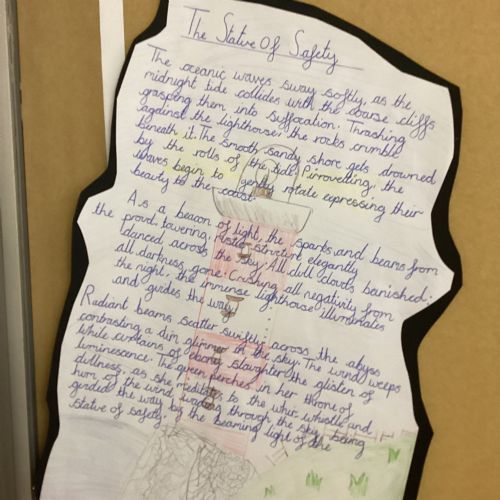 The Statue Of Safety
The oceanic waves sway softly, as the
midnight tide collides with the coarse cliffs
grasping them into suffocation. Thrashing
against the lighthouse, the rocks crumble
beneath it. The smooth sandy shore gets drowned
by the rolls of the tide. Pirrouetting, the
waves begin to gently rotate expressing their
beauty to the coast.
As a beacon of light, the sparks and beams from
the proud, towering, rustic structure elegantly
danced across the sky. All dull clouds banished;
all darkness gone. Crushing all negativity from
the night, the immense lighthouse illuminates
and guides the way.
Radiant beams scatter swiftly across the abyss
contrasting a dim glimmer in the sky. The wind weeps
while curtains of ebony slaughter the glisten of
luminescence. The queen perches in her throne of
dullness, as she meditates to the whir, whistle and
hum of the wind, wading through the sky, being
guided the way by the beaming light of the
statue of safety.